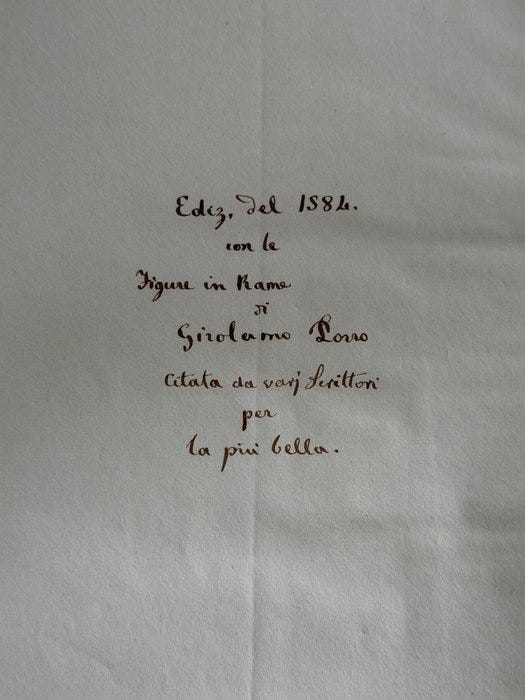 Ediz. del 1584.
con le
Figure in Rame
di
Girolamo Porro
Citata da varj Scrittori
per
la più bella.